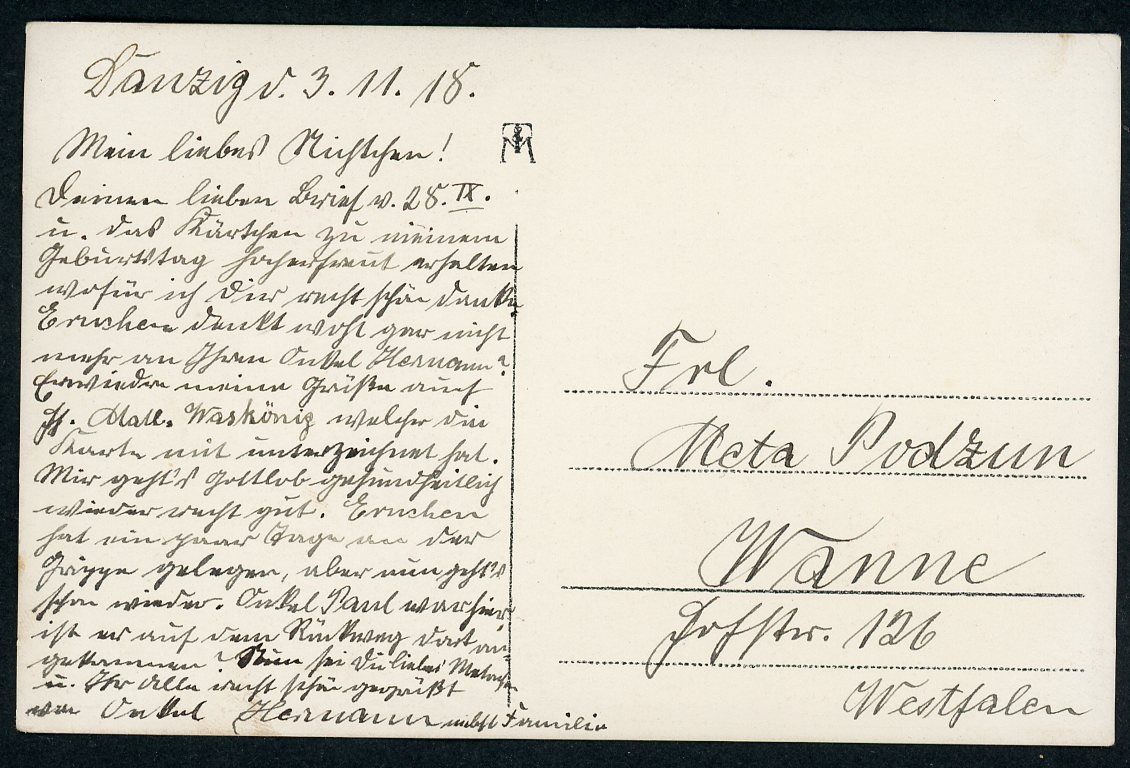 Danzig d. 3. 11. 18.
Mein liebes Nichtchen!
Deinen lieben Brief v. 28. IX.
u. das Kärtchen zu meinem
Geburtstag hocherfreut erhalten
wofür ich Dir recht schön danke
Ernchen denkt wohl gar nicht
mehr an Ihren Onkel Hermann?
Erwiedre meine Grüße auch
Waskönig welcher die
Karte mit unterzeichnet hat.
Mir geht's Gottlob gesundheitlich
wieder recht gut. Ernchen
hat ein paar Tage an der
Grippe gelegen, aber nun geht's
schon wieder. Onkel Paul war hier,
ist er auf dem Rückweg dort an-
gekommen? Nun sei Du liebes Metachen
u. Ihr Alle recht schön gegrüßt
von Onkel Hermann nebst Familie
Frl.
Meta Podzun
Wanne
Hofstr. 126
Westfalen